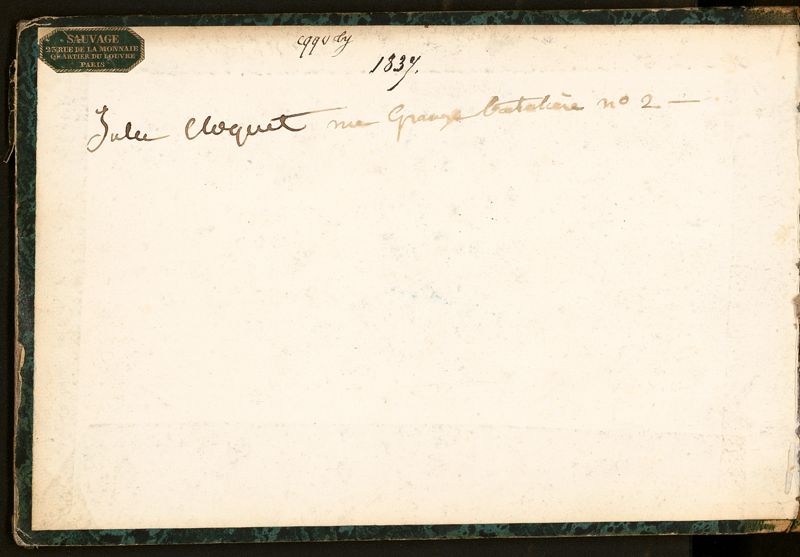 SAUVAGE
25 RUE DE LA MONNAIE
QUARTIER DU LOUVRE
PARIS
1837.
Jules Cloquet rue Grange batelière no 2 —